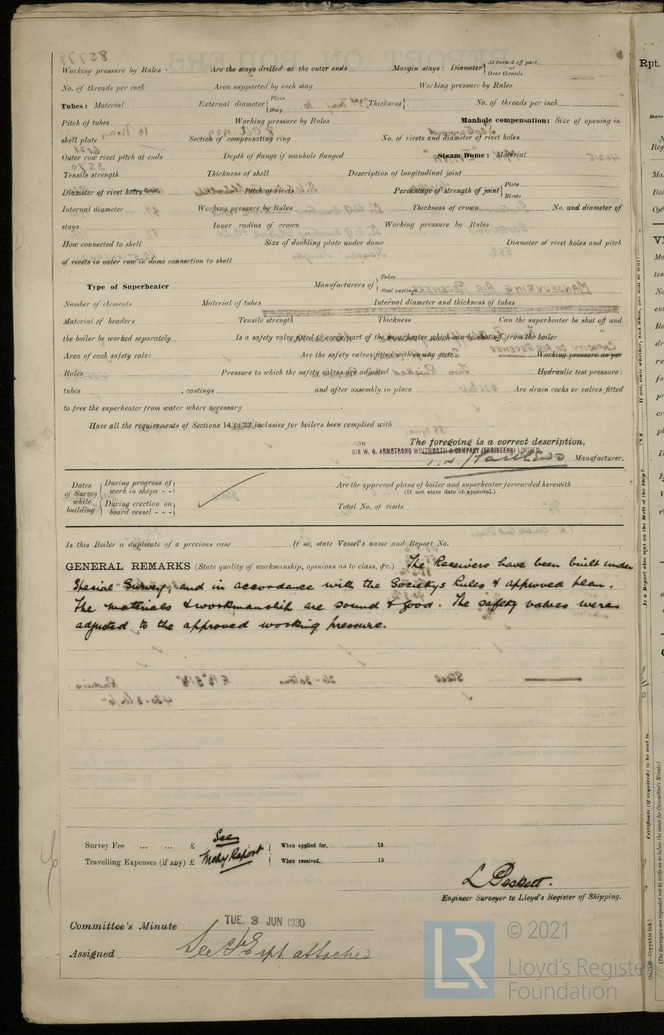 Working pressure by Rules - Are the stays drilled at the outer ends Margin stays: Diameter { At turned off part, or Over threads.
No. of threads per inch Area supported by each stay Working pressure by Rules
Tubes: Material External diameter { Plain Stay Thickness { No. of threads per inch
Pitch of tubes Working pressure by Rules Manhole compensation: Size of opening in
shell plate Section of compensating ring No. of rivets and diameter of rivet holes
Outer row rivet pitch at ends Depth of flange if manhole flanged Steam Dome: Material
Tensile strength Thickness of shell Description of longitudinal joint
Diameter of rivet holes Pitch of rivets Percentage of strength of joint { Plate Rivets
Internal diameter Working pressure by Rules Thickness of crown No. and diameter of
stays Inner radius of crown Working pressure by Rules
How connected to shell Size of doubling plate under dome Diameter of rivet holes and pitch
of rivets in outer row in dome connection to shell
Type of Superheater Manufacturers of { Tubes Steel castings
Number of elements Material of tubes Internal diameter and thickness of tubes
Material of headers Tensile strength Thickness Can the superheater be shut off and
the boiler be worked separately Is a safety valve fitted to every part of the superheater which can be shut off from the boiler
Area of each safety valve Are the safety valves fitted with easing gear Working pressure as per
Rules Pressure to which the safety valves are adjusted Hydraulic test pressure:
tubes , castings and after assembly in place Are drain cocks or valves fitted
to free the superheater from water where necessary
Have all the requirements of Sections 14 to 22 inclusive for boilers been complied with
The foregoing is a correct description,
FOR
SIR W. G. ARMSTRONG WHITWORTH & COMPANY (ENGINEERS) LIMITED
Manufacturer.
Dates of Survey while building { During progress of work in shops - - } { During erection on board vessel - - - } Are the approved plans of boiler and superheater forwarded herewith
(If not state date of approval.)
Total No. of visits
Is this Boiler a duplicate of a previous case If so, state Vessel's name and Report No.
GENERAL REMARKS (State quality of workmanship, opinions as to class, &c.) The Receivers have been built under
Special Survey, and in accordance with the Society's Rules & approved plan.
The materials & workmanship are sound & good. The safety valves were
adjusted to the approved working pressure.
Survey Fee ... ... £ See { When applied for, 19
Travelling Expenses (if any) £ Mchy Report { When received, 19
L Beskett.
Engineer Surveyor to Lloyd's Register of Shipping.
Committee's Minute TUE. 3 JUN 1930
Assigned See rpt attached
© 2021
Lloyd's Register
Foundation
LR
Rpt.